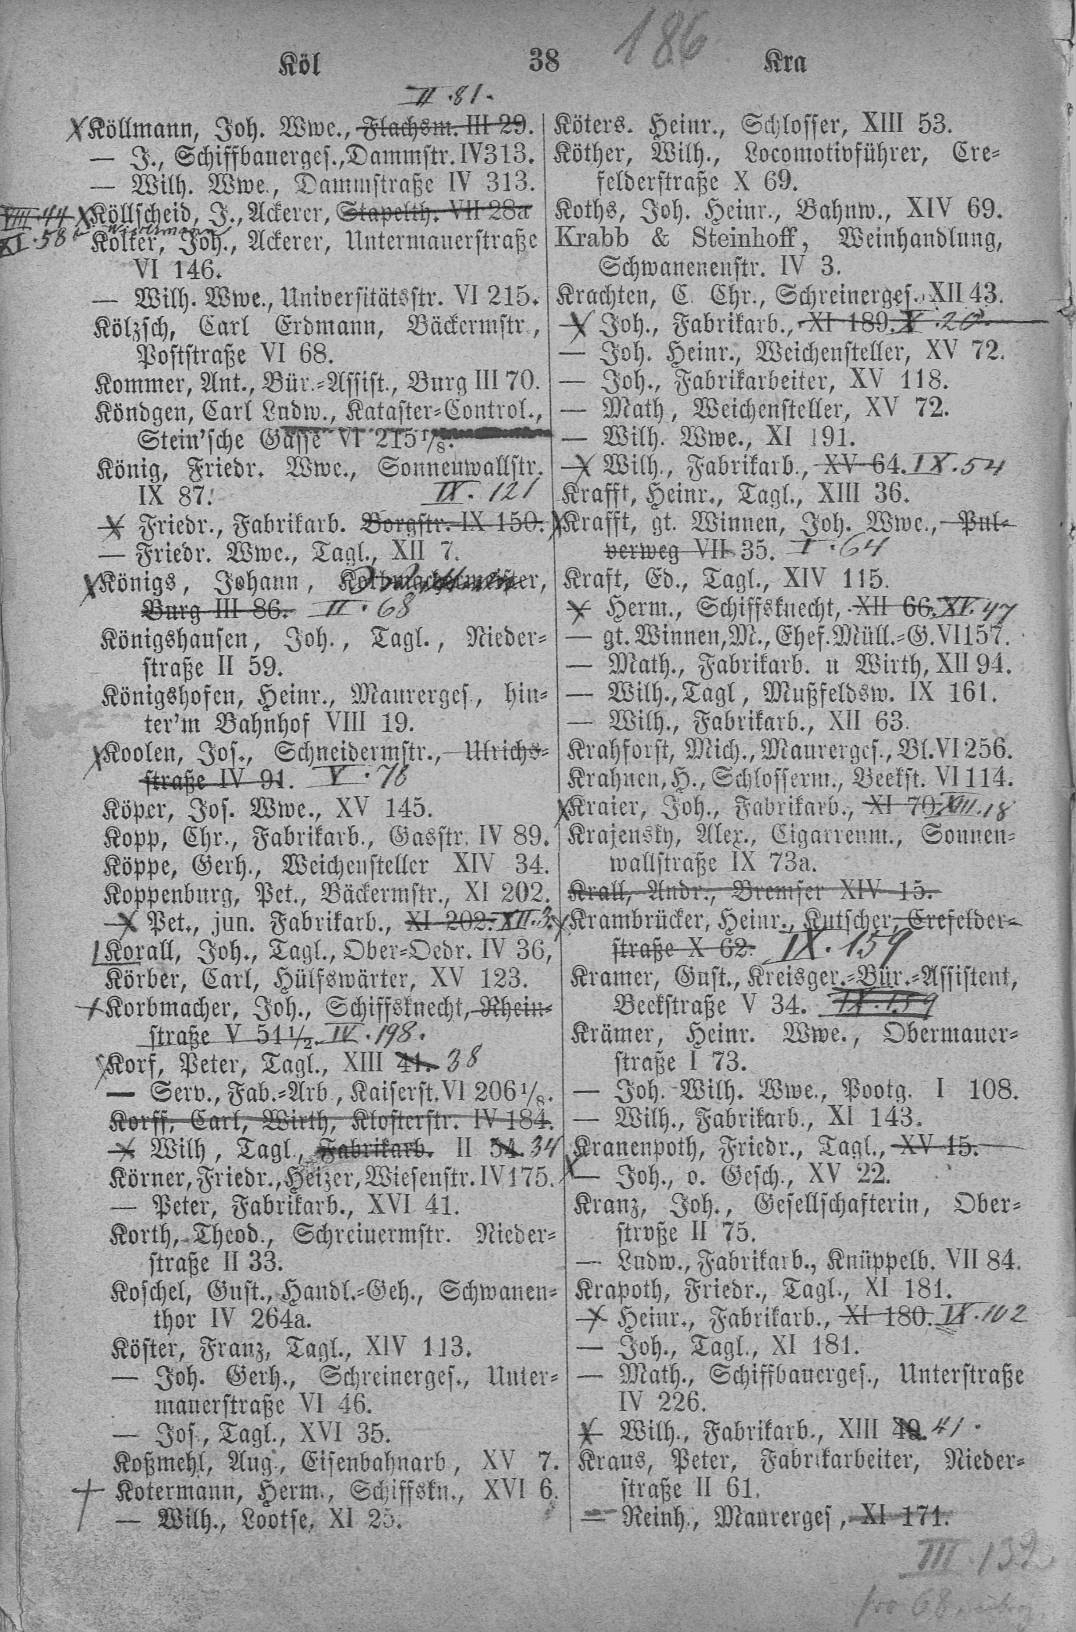 186
Köl 38 Kra
II.81.
Köllmann, Joh. Wwe., Flachsm. III 29.
— J., Schiffbauerges., Dammstr. IV 313.
— Wilh. Wwe., Dammstraße IV 313.
VIII.44 Köllscheid, J., Ackerer, Stapelth. VII 28a
XI.58
Kolker, Joh., Ackerer, Untermauerstraße
VI 146.
— Wilh. Wwe., Universitätsstr. VI 215.
Kölzsch, Carl Erdmann, Bäckermstr.,
Poststraße VI 68.
Kommer, Ant., Bür.-Assist., Burg III 70.
Köndgen, Carl Ludw., Kataster-Control.,
Stein'sche Gasse VI 215 1/8.
König, Friedr. Wwe., Sonnenwallstr.
IX 87. IX.121
— Friedr., Fabrikarb. Borgstr. IX 150.
— Friedr. Wwe., Tagl., XII 7.
Königs, Johann,
Burg III 86. II.68
Königshausen, Joh., Tagl., Nieder-
straße II 59.
Königshofen, Heinr., Maurerges., hin-
ter'm Bahnhof VIII 19.
Koolen, Jos., Schneidermstr., Ulrichs-
straße IV 91. V.78
Köper, Jos. Wwe., XV 145.
Kopp, Chr., Fabrikarb., Gasstr. IV 89.
Köppe, Gerh., Weichensteller XIV 34.
Koppenburg, Pet., Bäckermstr., XI 202.
— Pet., jun. Fabrikarb., XI 202. XII.3.
Korall, Joh., Tagl., Ober-Oedr. IV 36,
Körber, Carl, Hülfswärter, XV 123.
Korbmacher, Joh., Schiffsknecht, Rhein-
straße V 51 1/2. IV.198.
Korf, Peter, Tagl., XIII 41. 38
— Serv., Fab.-Arb, Kaiserst. VI 206 1/8.
Korff, Carl, Wirth, Klosterstr. IV 184.
— Wilh, Tagl., Fabrikarb. II 54. 34
Körner, Friedr., Heizer, Wiesenstr. IV 175.
— Peter, Fabrikarb., XVI 41.
Korth, Theod., Schreinermstr. Nieder-
straße II 33.
Koschel, Gust., Handl.-Geh., Schwanen-
thor IV 264a.
Köster, Franz, Tagl., XIV 113.
— Joh. Gerh., Schreinerges., Unter-
mauerstraße VI 46.
— Jos., Tagl., XVI 35.
Koßmehl, Aug., Eisenbahnarb, XV 7.
Kotermann, Herm., Schiffskn., XVI 6.
— Wilh., Lootse, XI 25.
Köters. Heinr., Schlosser, XIII 53.
Köther, Wilh., Locomotivführer, Cre-
felderstraße X 69.
Koths, Joh. Heinr., Bahnw., XIV 69.
Krabb & Steinhoff, Weinhandlung,
Schwanenenstr. IV 3.
Krachten, C. Chr., Schreinerges., XII 43.
— Joh., Fabrikarb., XI 189. X.20.
— Joh. Heinr., Weichensteller, XV 72.
— Joh., Fabrikarbeiter, XV 118.
— Math, Weichensteller, XV 72.
— Wilh. Wwe., XI 191.
— Wilh., Fabrikarb., XV 64. IX.54
Krafft, Heinr., Tagl., XIII 36.
Krafft, gt. Winnen, Joh. Wwe., Pul-
verweg VII 35. I.64
Kraft, Ed., Tagl., XIV 115.
— Herm., Schiffsknecht, XII 66. XV.47
— gt. Winnen, M., Ehef. Müll.-G. VI 157.
— Math., Fabrikarb. u Wirth, XII 94.
— Wilh., Tagl, Mußfeldsw. IX 161.
— Wilh., Fabrikarb., XII 63.
Krahforst, Mich., Maurerges., Bl. VI 256.
Krahnen, H., Schlosserm., Beekst. VI 114.
Kraier, Joh., Fabrikarb., XI 70. XIII.18
Krajensky, Alex., Cigarrenm., Sonnen-
wallstraße IX 73a.
Krall, Andr., Bremser XIV 15.
Krambrücker, Heinr., Kutscher, Crefelder-
straße X 62. IX.159
Kramer, Gust., Kreisger.-Bür.-Assistent,
Beekstraße V 34. IX.159
Krämer, Heinr. Wwe., Obermauer-
straße I 73.
— Joh. Wilh. Wwe., Pootg. I 108.
— Wilh., Fabrikarb., XI 143.
Kranenpoth, Friedr., Tagl., XV 15.
— Joh., o. Gesch., XV 22.
Kranz, Joh., Gesellschafterin, Ober-
straße II 75.
— Ludw., Fabrikarb., Knüppelb. VII 84.
Krapoth, Friedr., Tagl., XI 181.
— Heinr., Fabrikarb., XI 180. IX.102
— Joh., Tagl., XI 181.
— Math., Schiffbauerges., Unterstraße
IV 226.
— Wilh., Fabrikarb., XIII 40. 41.
Kraus, Peter, Fabrikarbeiter, Nieder-
straße II 61.
— Reinh., Maurerges, XI 171.
III.132
68.